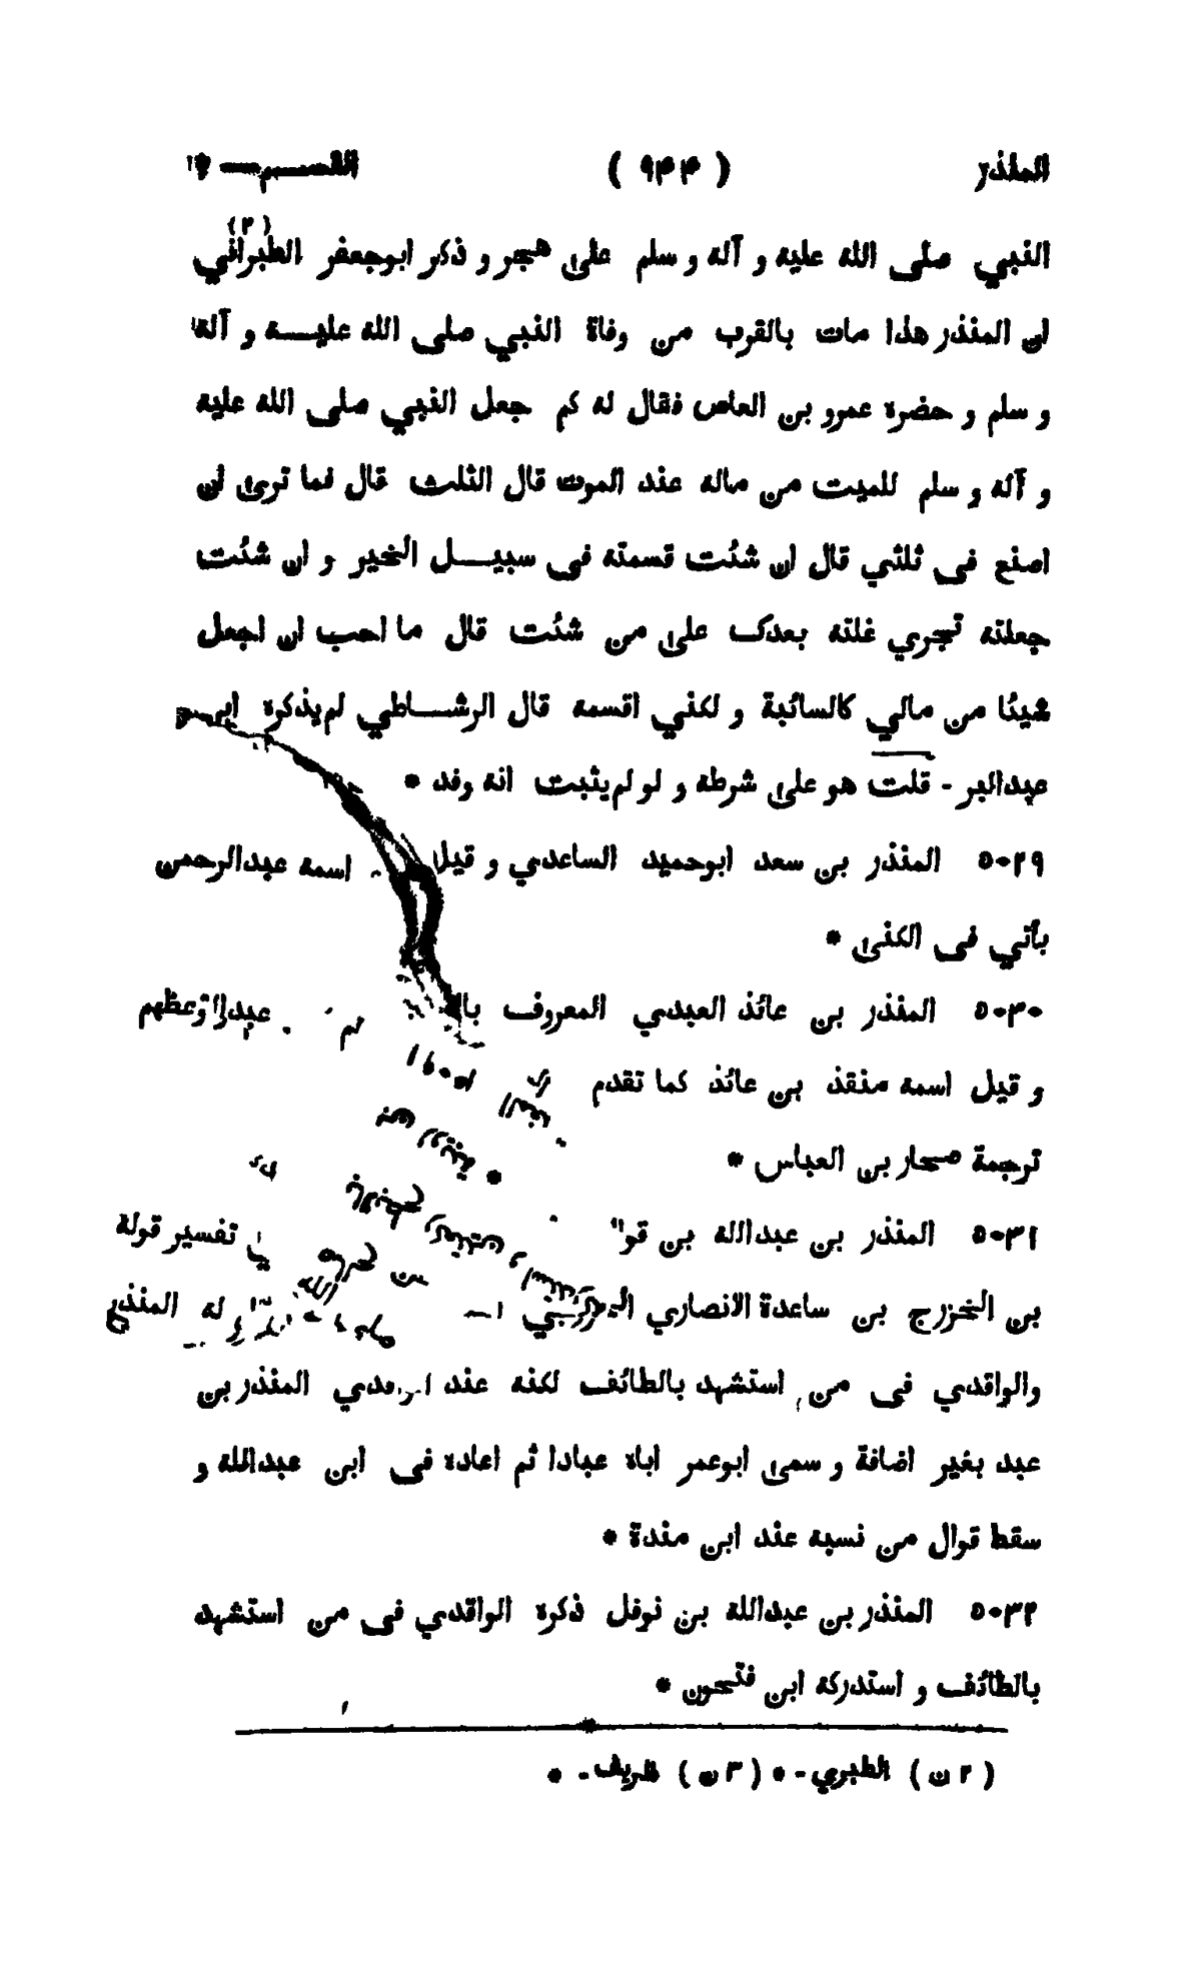 المنذر ( ۹۴۴ ) القسم — ۱
النبي صلى الله عليه و آله و سلم على هجر و ذكر ابوجعفر الطبراني (۲)
ان المنذر هذا مات بالقرب من وفاة النبي صلى الله عليه و آله
و سلم و حضره عمرو بن العاص فقال له كم جعل النبي صلى الله عليه
و آله و سلم للميت من ماله عند الموت قال الثلث قال فما ترى ان
اصنع فى ثلثي قال ان شئت قسمته فى سبيل الخير و ان شئت
جعلته تجري غلته بعدك على من شئت قال ما احب ان اجعل
شيئا من مالي كالسائبة و لكني اقسمه قال الرشاطي لم يذكره
عبدالبر - قلت هو على شرطه و لو لم يثبت انه وفد *
۵۰۲۹ المنذر بن سعد ابوحميد الساعدي و قيل اسمه عبدالرحمن
يأتي فى الكنى *
۵۰۳۰ المنذر بن عائذ العبدي المعروف
و قيل اسمه منقذ بن عائذ كما تقدم
ترجمة صحار بن العباس *
۵۰۳۱ المنذر بن عبدالله بن تفسير قوله
بن الخزرج بن ساعدة الانصاري له المنذر
والواقدي فى من استشهد بالطائف لكنه عند المنذر بن
عبد بغير اضافة و سمى ابوعمر اباه عبادا ثم اعاده فى ابن عبدالله و
سقط قوال من نسبه عند ابن مندة *
۵۰۳۲ المنذر بن عبدالله بن نوفل ذكره الواقدي فى من استشهد
بالطائف و استدركه ابن فتحون *
( ۲ ن ) الطبري - * ( ۳ ن ) ظريف - *